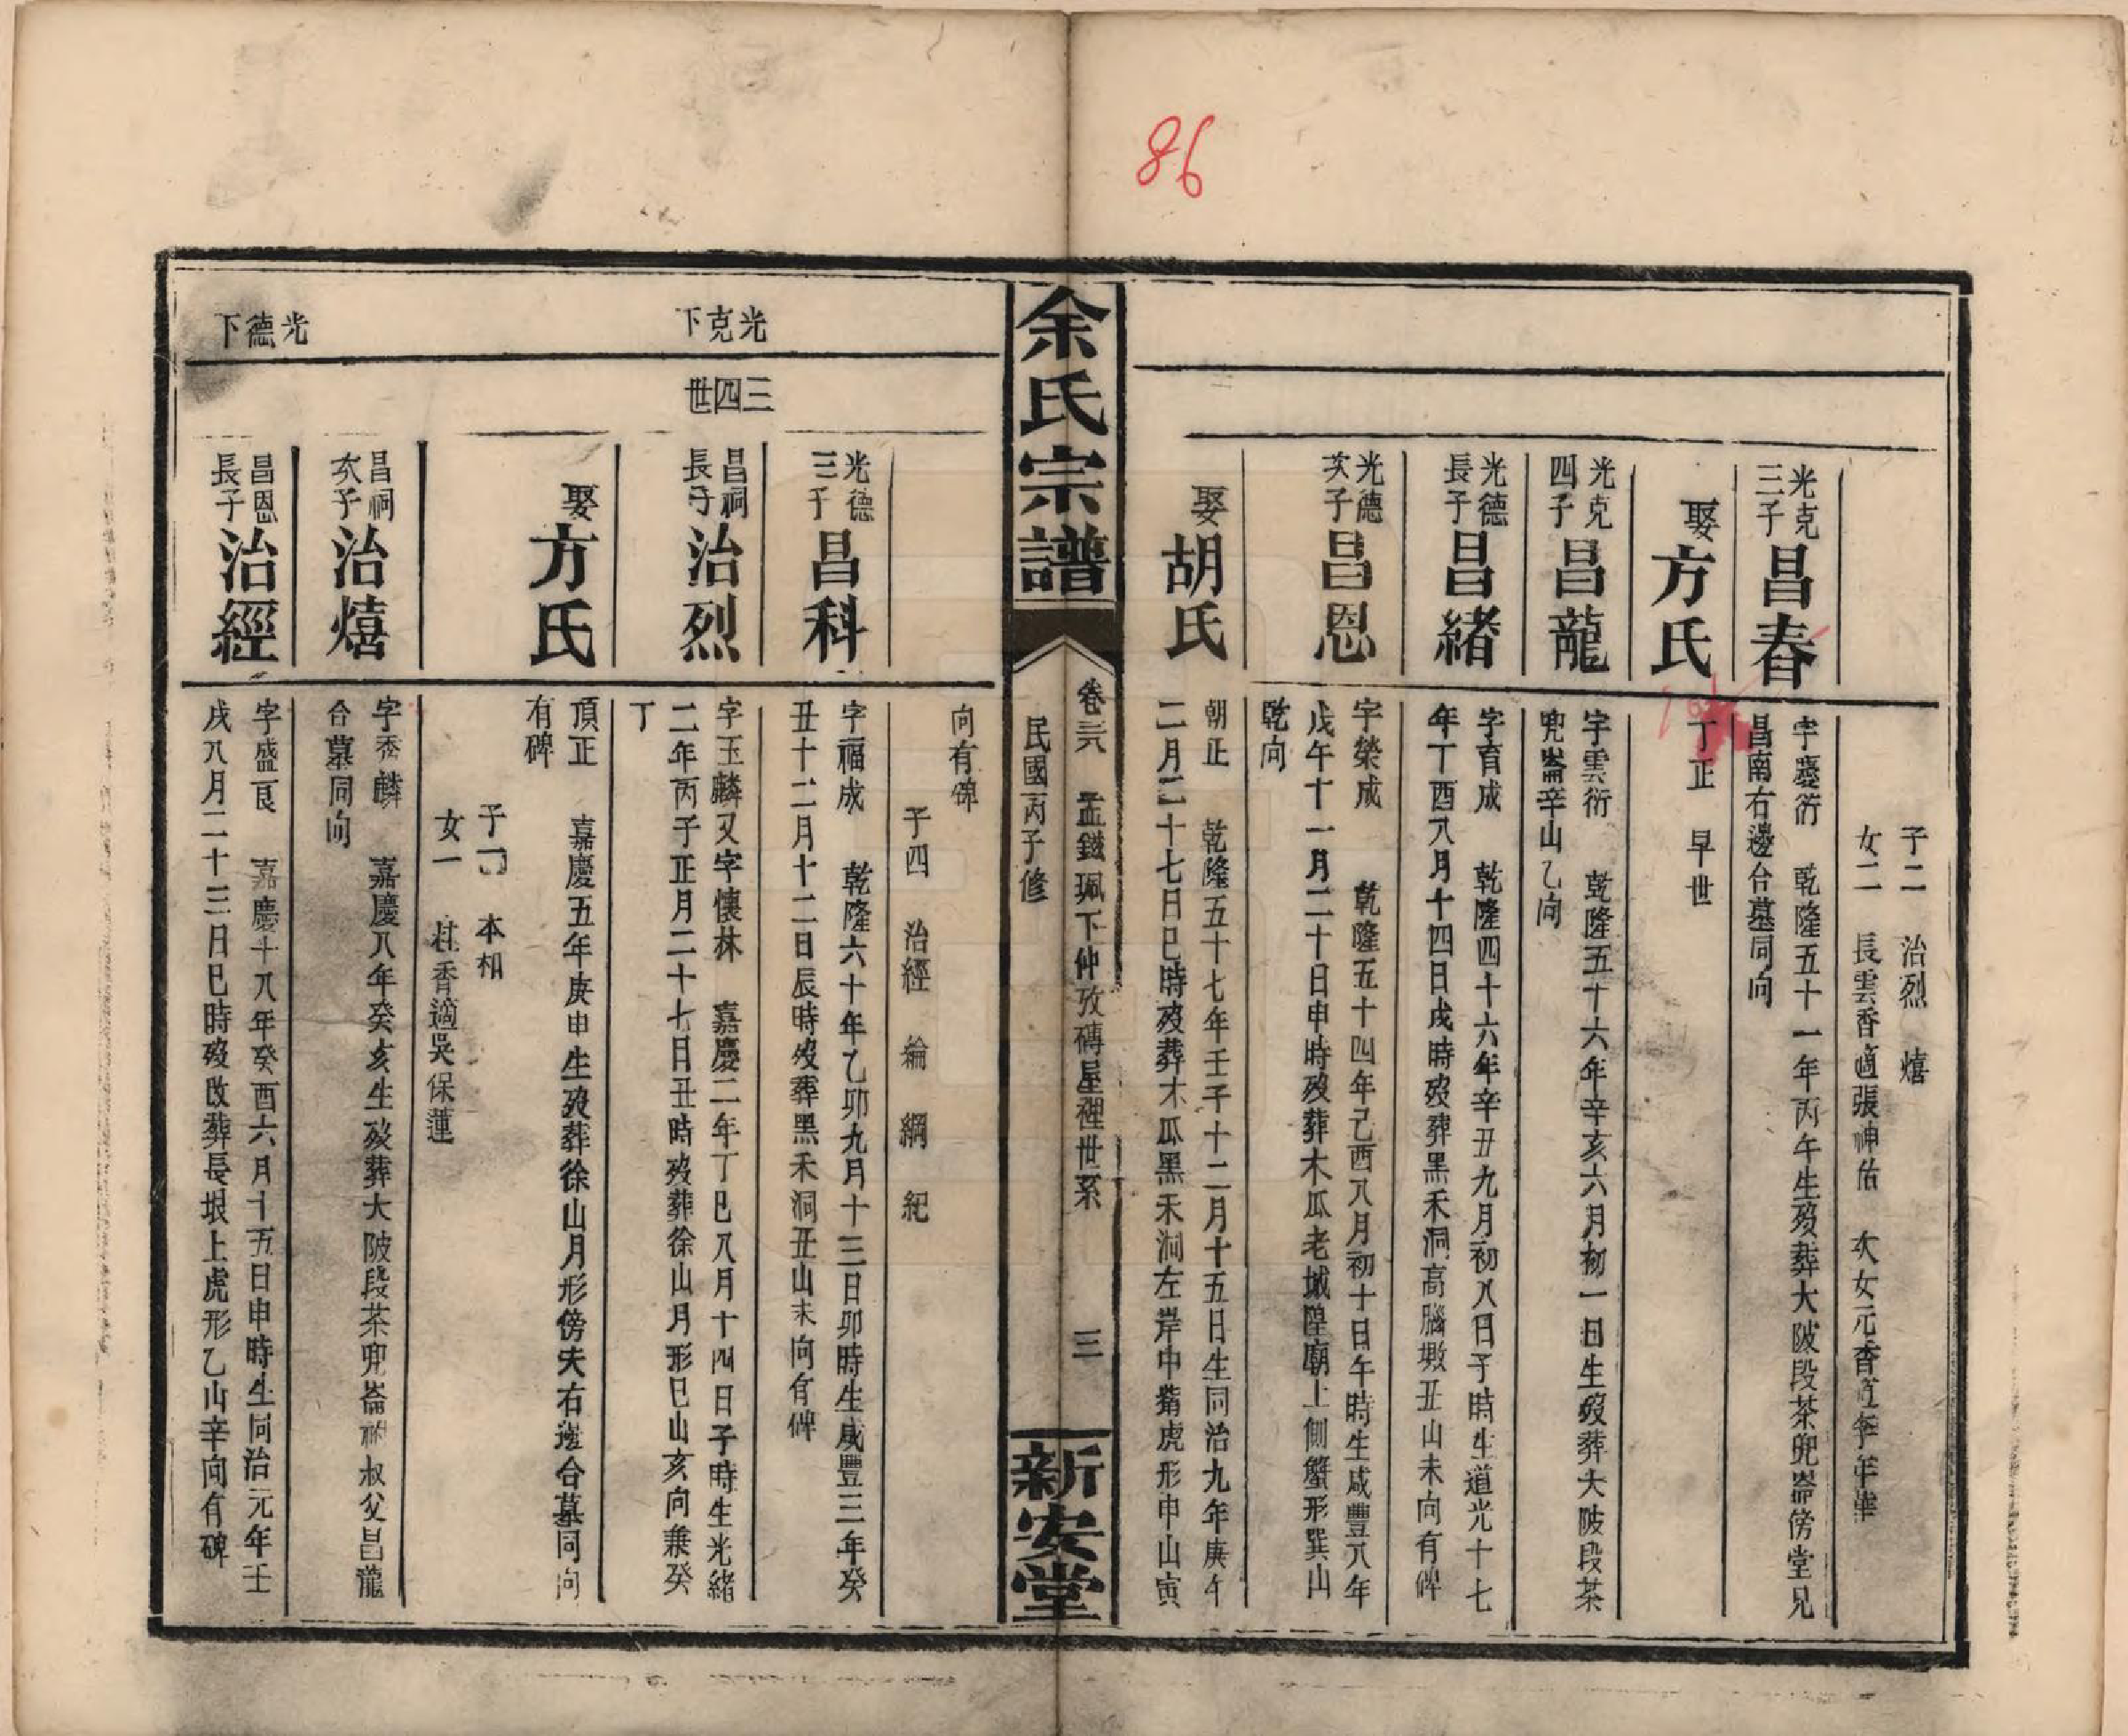 86
子二　治烈　熺
女二　長雲香適張神佑　次女元香適李年華
光克
三子
昌春
字慶衍　乾隆五十一年丙午生歿葬大陂段茶兜崙傍堂兄
昌南右邊合墓同向
娶
方氏
丁正　早世
光克
四子
昌龍
字雲衍　乾隆五十六年辛亥六月初一日生歿葬大陂段茶
兜崙辛山乙向
光德
長子
昌緒
字育成　乾隆四十六年辛丑九月初八日子時生道光十七
年丁酉八月十四日戌時歿葬黑禾洞高腦墩丑山未向有碑
光德
次子
昌恩
字榮成　乾隆五十四年己酉八月初十日午時生咸豐八年
戊午十一月二十日申時歿葬木瓜老城隍廟上側蟹形巽山
乾向
娶
胡氏
朝正　乾隆五十七年壬子十二月十五日生同治九年庚午
二月二十七日巳時歿葬木瓜黑禾洞左岸中嘴虎形申山寅
余氏宗譜
卷三六　孟鐵珮下仲攷磚屋裡世系　三
民國丙子修
新安堂
向有碑
子四　治經　綸　綱　紀
光德
三子
昌科
字福成　乾隆六十年乙卯九月十三日卯時生咸豐三年癸
丑十二月十二日辰時歿葬黑禾洞丑山未向有碑
光克下
三四世
昌祠
長子
治烈
字玉麟又字懷林　嘉慶二年丁巳八月十四日子時生光緒
二年丙子正月二十七日丑時歿葬徐山月形巳山亥向兼癸
丁
娶
方氏
頂正　嘉慶五年庚申生歿葬徐山月形傍夫右邊合墓同向
有碑
子一　本相
女一　桂香適吳保蓮
昌祠
次子
治熺
字秀麟　嘉慶八年癸亥生歿葬大陂段茶兜崙祔叔父昌龍
合墓同向
光德下
昌恩
長子
治經
字盛良　嘉慶十八年癸酉六月十五日申時生同治元年壬
戌八月二十三日巳時歿改葬長垠上虎形乙山辛向有碑